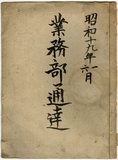 昭和十九年一月
六月
業務部通達